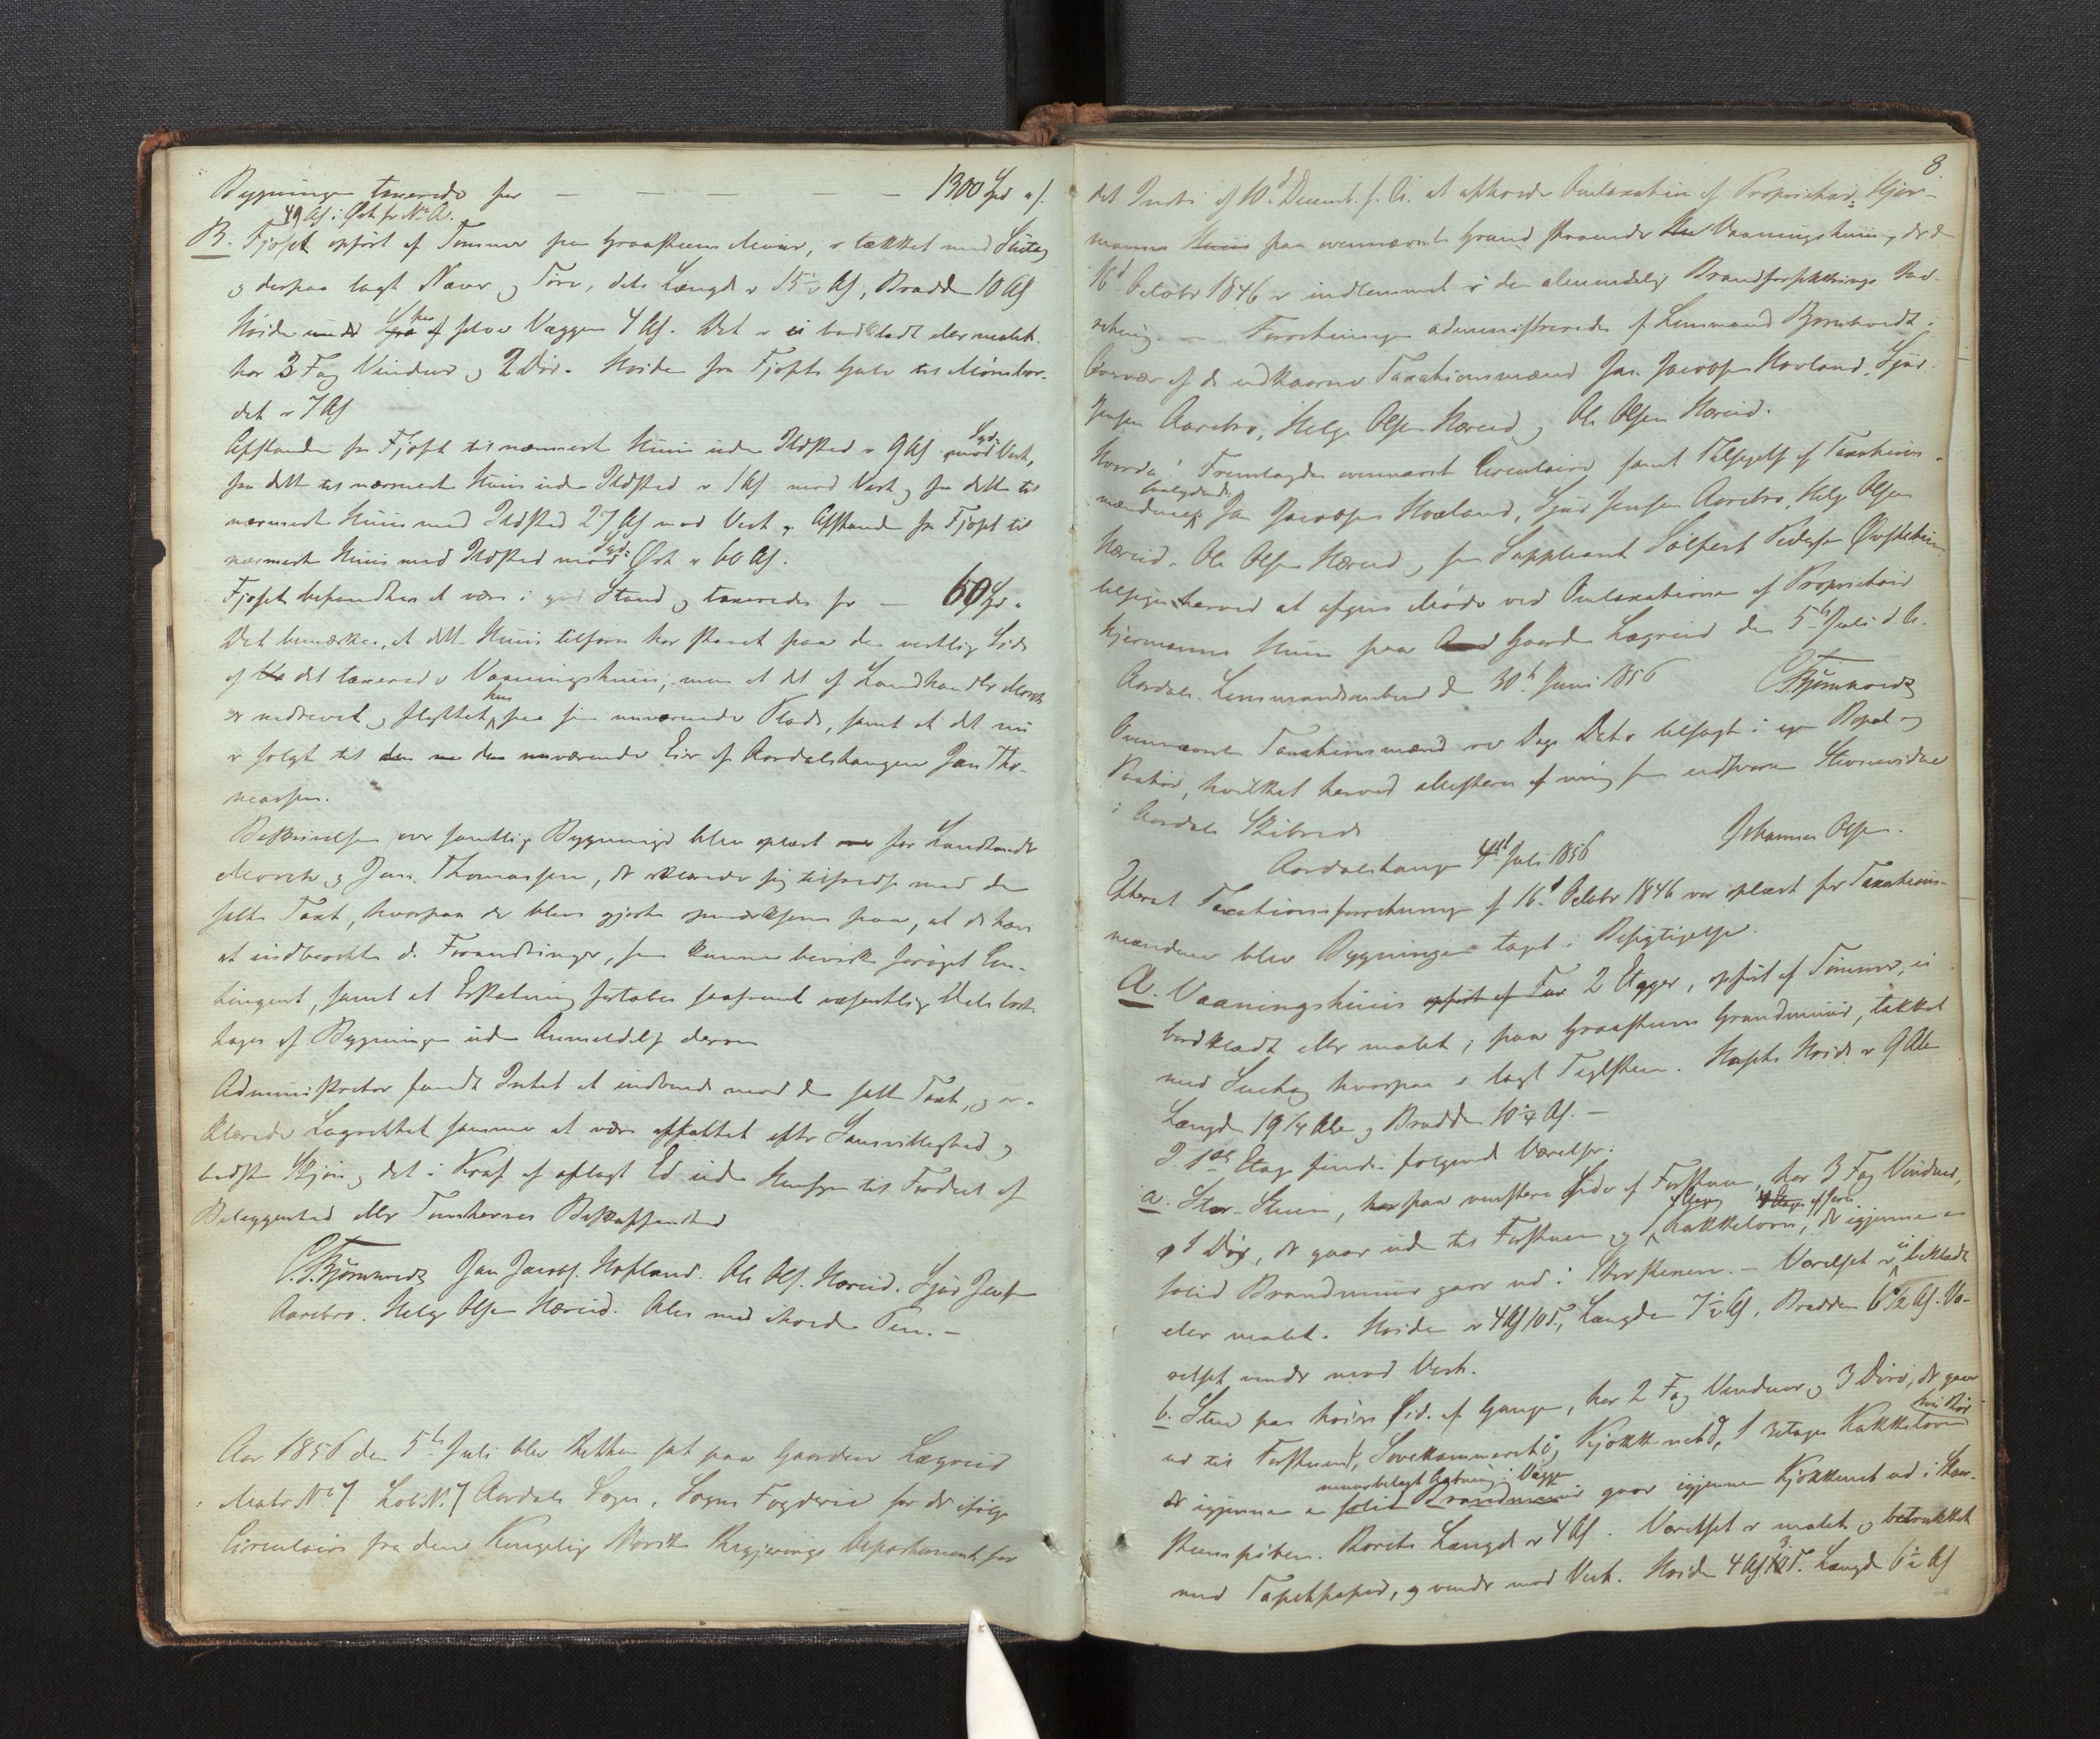 Bygningen taxeredes for — — — — — 1300 Spd
49 Al. i Øst fr No A.
B. Fjøset opført af Tømmer paa Graasteens Muur, er tækket med Suutag
og derpaa lagt Næver og Torv, dets Længde er 15½ Al, Bredde 10 Al
Høide under selve Væggen 4 Al. Det er ei bordklædt eller malet.
har 3 Fag Vinduer og 2 Dør. Høiden fra Fjøsets Gulv til Mønsbor-
det er 7 Al
Afstanden fra Fjøset til nærmeste Huus uden Ildsted er 9 Al mod Syd-Vest,
fra dette til nærmeste Huus uden Ildsted er 1 Al mod Vest og fra dette til
nærmeste Huus med Ildsted 27 Al mod Vest, Afstanden fra Fjøset til
nærmeste Huus med Ildsted mod Syd-Øst er 60 Al.
Fjøset befandtes at være i god Stand og taxeredes for — 60 Spd.
Det bemærkes, at dette Huus tilforn har staaet paa den vestlige Side
af det taxerede Vaaningshuus, men at det af Landhandler Morch
er nedrevet og flyttet hen paa sin nuværende Plads, samt at det nu
er solgt til den nuværende Eier af Aardalstangen Jan Tho-
massen.
Beskrivelsen over samtlige Bygninger blev oplæst for Landhandler
Morch og Jan Thomassen, der erklærede sig tilfreds med den
satte Taxt, hvorpaa de bleve gjorte opmærksom paa, at de have
at indberette de Forandringer, som kunne bevirke forøget Con-
tingent, samt at Erstatning fortabes saafremt væsentlige Dele bort-
tages af Bygningen uden Anmeldelse derom
Administrator fandt Intet at indvende mod den satte Taxt, og er-
klærede Lagrettet samme at være affattet efter Samvittighed og
bedste Skjøn og det i Kraft af aflagt Ed uden Hensyn til Stedets
Beliggenhed eller Tomternes Beskaffenhed
C. Bjørnhvedt Jan Jacobs. Hofland. Ole Ols. Hæreid. Sjur Jens
Aarebro. Helge Olsen Hæreid. Alle med ihold Pen. —
Aar 1856 den 5te Juli blev Retten sat paa Gaarden Lægreid
Matr No 7 Løb. No. 7 Aardals Sogn, Sogns Fogderie for der ifølge
Circulaire fra den Kongelige Norske Regjerings Departement for
8.
det Indre af 10de Decemb. f. A. at afholde Omtaxation af Proprietair Hjer-
manns paa ovennævnte Grund staaende Vaaningshuus, der d
16de October 1846 er indlemmet i den almindelige Brandforsikkrings Ind-
retning. — Forretningen administreredes af Lensmand Bjørnhvedt i
Overvær af de udkaarne Taxationsmænd Jan Jacobsen Hovland, Sjur
Jensen Aarebro, Helge Olsen Hæreid og Ole Olsen Hæreid.
Hvorda! Fremlagdes ovennævnte Circulaire samt Tilsigelse af Taxations-
mændene saalydende: Jan Jacobsen Hovland, Sjur Jensen Aarebro, Helge Olsen
Hæreid, Ole Olsen Hæreid, som Suppleant Sølfest Pedersen Øvstetun
tilsiges herved at afgive Møde ved Omtaxationen af Proprietair
Hjermanns Huus paa Gaarden Lægreid den 5te Juli d. A.
Aardals Lensmandsembed d 30te Juni 1856 C. Bjørnhvedt
Ovennævnte Taxationsmænd ere Dags Dato tilsagt i egen Bopæl og
Paahør, hvilket herved attesteres af mig som eedsvoren Stevnevidne
i Aardals Skibrede
Aardalstangen 4de Juli 1856 Johannes Olsen.
Efterat Taxationsforretningen af 16de October 1846 var oplæst for Taxations-
mændene blev Bygningen taget i Besigtigelse.
A. Vaaningshuus opført af Tøm 2 Etager, opført af Tømmer, ei
bordklædt eller malet, paa Graasteens Grundmuur, tækket
med Suutag hvorpaa er lagt Teglsteen. Husets Høide er 9 Alen
Længde 19¼ Alen og Bredde 10¼ Al. —
I 1ste Etage findes følgende Værelser:
a. Stor-Stuen, paa venstre Side af Forstuen, har 3 Fag Vinduer,
1 Dør, der gaar ud til Forstuen og 1 Kakkelovn, der igjennem en
solid Brandmuur gaar ud i Skorstenen. — Værelset er ei beklædt
eller malet. Høiden er 4 Al 10 T., Længden 7½ Al, Bredden 6½ Al. Væ-
relset vender mod Vest.
b. Stue paa høire Side af Gangen, har 2 Fag Vinduer og 3 Døre, der gaar
ud til Forstuen, Sovekammeret og Kjøkkenet, 1 2etages Kakkelovn hvis Rør
der igjennem en solid Brandmuur gaar igjennem Kjøkkenet ud i Skor-
steenspiben. Rørets Længde er 4 Al. Værelset er malet og betrukket
med Tapetpapir, og vender mod Vest. Høide 4 Al 3 T. Længde 6½ Al